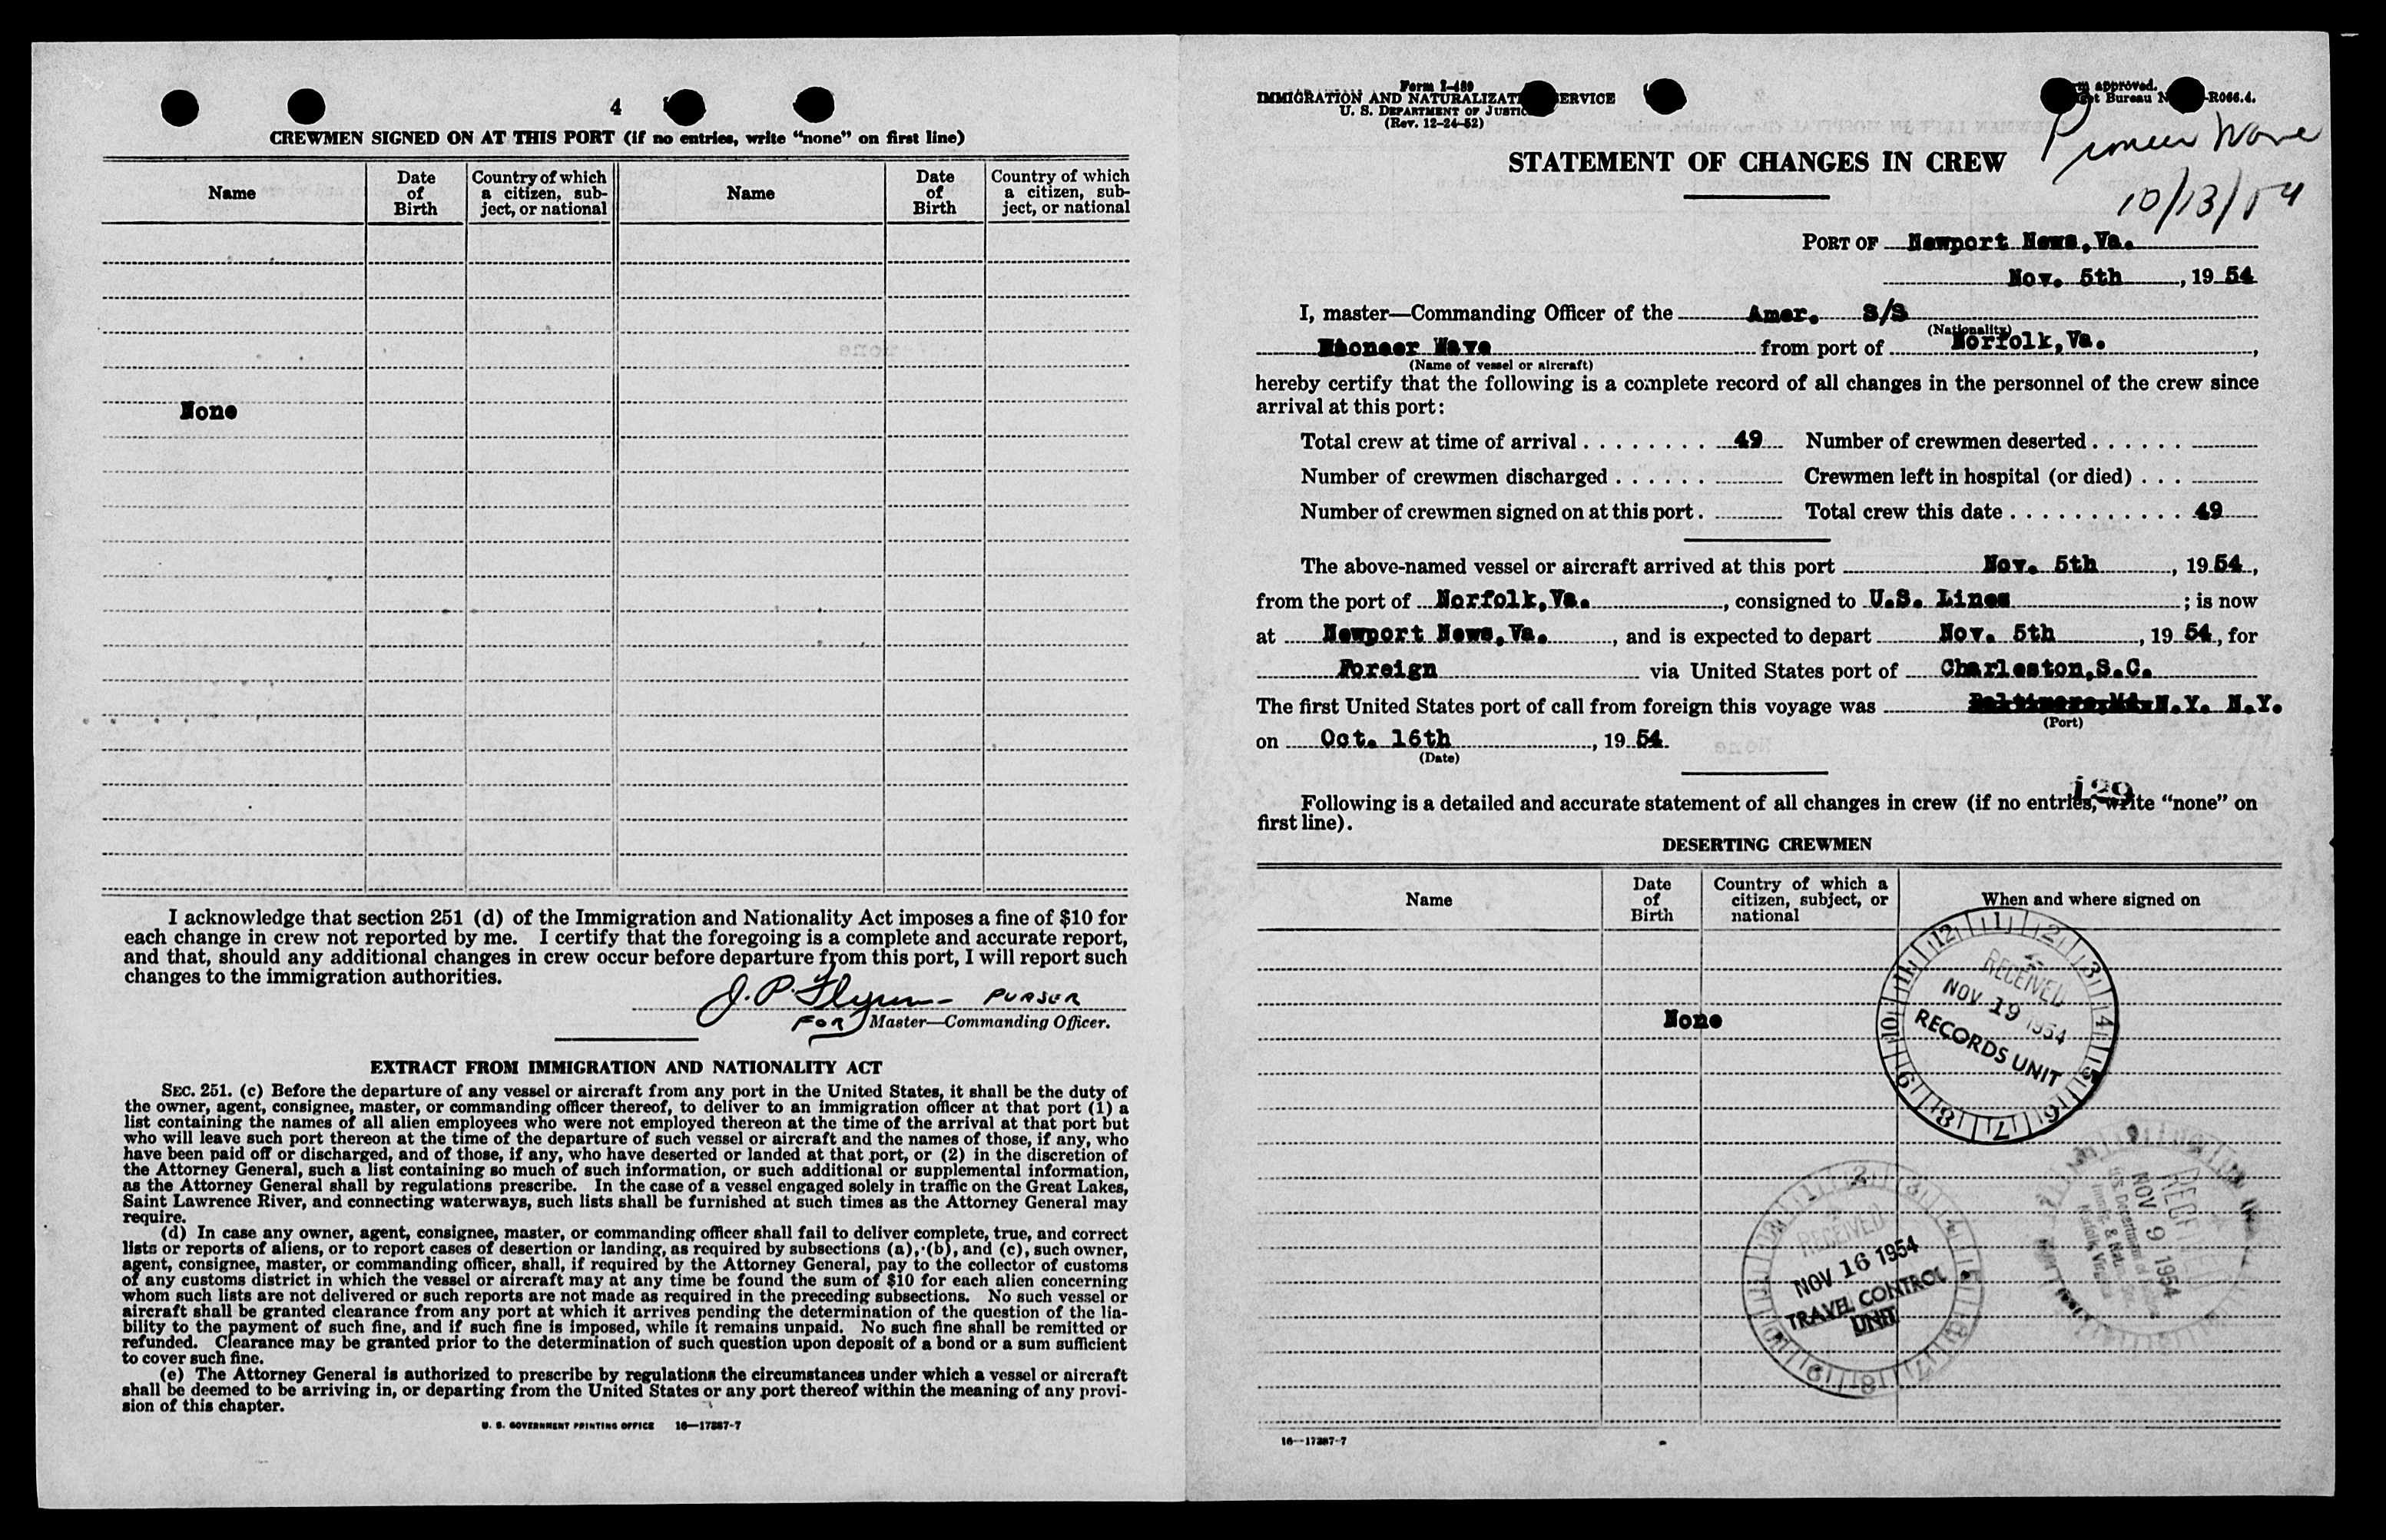 4
CREWMEN SIGNED ON AT THIS PORT (if no entries, write “none” on first line)
Name
Date of Birth
Country of which a citizen, subject, or national
Name
Date of Birth
Country of which a citizen, subject, or national
None
I acknowledge that section 251 (d) of the Immigration and Nationality Act imposes a fine of $10 for
each change in crew not reported by me. I certify that the foregoing is a complete and accurate report,
and that, should any additional changes in crew occur before departure from this port, I will report such
changes to the immigration authorities.
J. P. Flynn PURSER
FOR Master—Commanding Officer.
EXTRACT FROM IMMIGRATION AND NATIONALITY ACT
SEC. 251. (c) Before the departure of any vessel or aircraft from any port in the United States, it shall be the duty of
the owner, agent, consignee, master, or commanding officer thereof, to deliver to an immigration officer at that port (1) a
list containing the names of all alien employees who were not employed thereon at the time of the arrival at that port but
who will leave such port thereon at the time of the departure of such vessel or aircraft and the names of those, if any, who
have been paid off or discharged, and of those, if any, who have deserted or landed at that port, or (2) in the discretion of
the Attorney General, such a list containing so much of such information, or such additional or supplemental information,
as the Attorney General shall by regulations prescribe. In the case of a vessel engaged solely in traffic on the Great Lakes,
Saint Lawrence River, and connecting waterways, such lists shall be furnished at such times as the Attorney General may
require.
(d) In case any owner, agent, consignee, master, or commanding officer shall fail to deliver complete, true, and correct
lists or reports of aliens, or to report cases of desertion or landing, as required by subsections (a), (b), and (c), such owner,
agent, consignee, master, or commanding officer, shall, if required by the Attorney General, pay to the collector of customs
of any customs district in which the vessel or aircraft may at any time be found the sum of $10 for each alien concerning
whom such lists are not delivered or such reports are not made as required in the preceding subsections. No such vessel or
aircraft shall be granted clearance from any port at which it arrives pending the determination of the question of the lia-
bility to the payment of such fine, and if such fine is imposed, while it remains unpaid. No such fine shall be remitted or
refunded. Clearance may be granted prior to the determination of such question upon deposit of a bond or a sum sufficient
to cover such fine.
(e) The Attorney General is authorized to prescribe by regulations the circumstances under which a vessel or aircraft
shall be deemed to be arriving in, or departing from the United States or any port thereof within the meaning of any provi-
sion of this chapter.
U. S. GOVERNMENT PRINTING OFFICE 16—17387-7
Form I-489
IMMIGRATION AND NATURALIZATI ERVICE
U. S. DEPARTMENT OF JUSTIC
(Rev. 12-24-52)
approved.
et Bureau N -R066.4.
Pioneer Wave
10/13/54
STATEMENT OF CHANGES IN CREW
PORT OF Newport News, Va.
Nov. 5th, 19 54
I, master—Commanding Officer of the Amer. S/S
(Nationality)
Pioneer Wave from port of Norfolk, Va.,
(Name of vessel or aircraft)
hereby certify that the following is a complete record of all changes in the personnel of the crew since
arrival at this port:
Total crew at time of arrival ........ 49 Number of crewmen deserted ......
Number of crewmen discharged ...... Crewmen left in hospital (or died) ...
Number of crewmen signed on at this port. Total crew this date ........... 49
The above-named vessel or aircraft arrived at this port Nov. 5th, 19 54,
from the port of Norfolk, Va., consigned to U.S. Lines; is now
at Newport News, Va., and is expected to depart Nov. 5th, 19 54, for
Foreign via United States port of Charleston, S.C.
The first United States port of call from foreign this voyage was Baltimore, Md. N.Y. N.Y.
(Port)
on Oct. 16th, 19 54.
(Date)
129
Following is a detailed and accurate statement of all changes in crew (if no entries, write “none” on
first line).
DESERTING CREWMEN
Name
Date of Birth
Country of which a citizen, subject, or national
When and where signed on
None
12 1 2 3 4 5 6 7 8 9 10 11
RECEIVED
NOV 19 1954
RECORDS UNIT
RECEIVED
NOV 16 1954
TRAVEL CONTROL
UNIT
NOV 9 1954
U.S. Department of
& Nat.
Norfolk, Virginia
16—17387-7